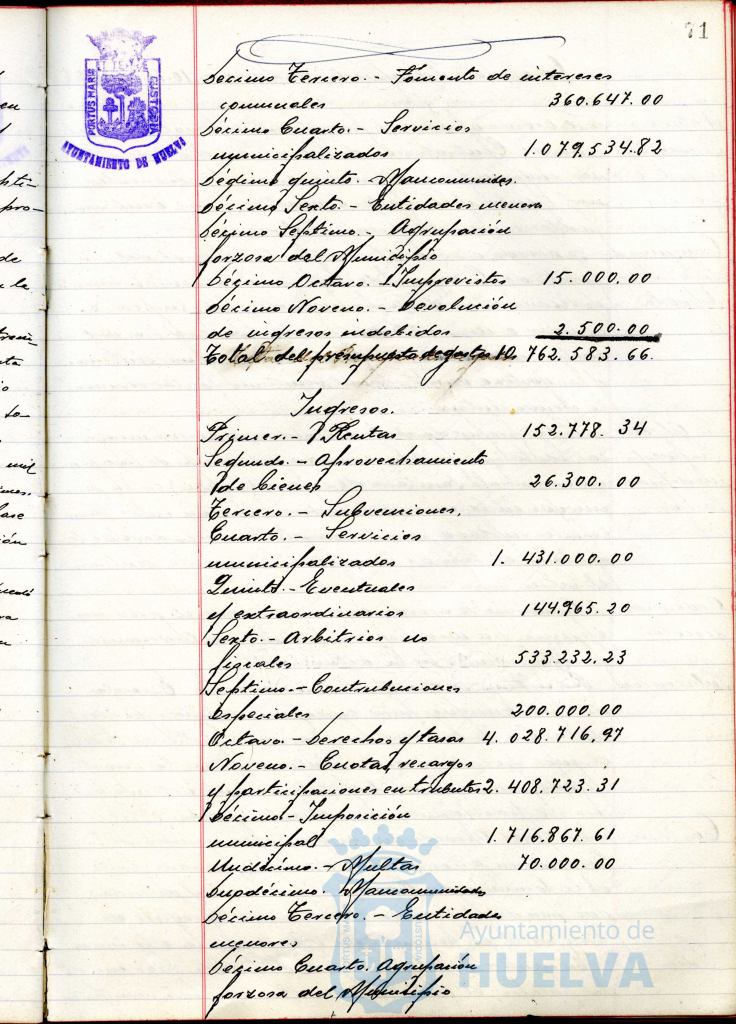 71
PORTUS MARIS
CUSTODIA
AYUNTAMIENTO DE HUELVA
Décimo Tercero.- Fomento de intereses
comunales 360.647.00
Décimo Cuarto.- Servicios
municipalizados 1.079.534.82
Dédimo quinto.- Mancomunides.
Décimo Sexto.- Entidades menores
Décimo Septimo.- Agrupación
forzosa del Municipio
Décimo Octavo. Imprevistos 15.000.00
Décimo Noveno.- Devolución
de ingresos indebidos 2.500.00
Total del presupuesto de gastos 10. 762.583.66.
Ingresos.
Primer.- Rentas 152.778.34
Segundo.- Aprovechamiento
de bienes 26.300.00
Tercero.- Subvenciones.
Cuarto.- Servicios
municipalizados 1.431.000.00
Quinto.- Eventuales
y extraordinarios 144.965.20
Sexto.- Arbitrios no
fiscales 533.232.23
Septimo.- Contribuciones
especiales 200.000.00
Octavo.- Derechos y tasas 4.028.716,97
Noveno.- Cuotas, recargos
y participaciones en tributos 2.408.723.31
Décimo- Imposición
municipal 1.716.867.61
Undécimo.- Multas 70.000.00
Duodécimo. Mancomunidades
Décimo Tercero.- Entidades
menores
Décimo Cuarto. Agrupación
forzosa del Municipio
Ayuntamiento de
HUELVA